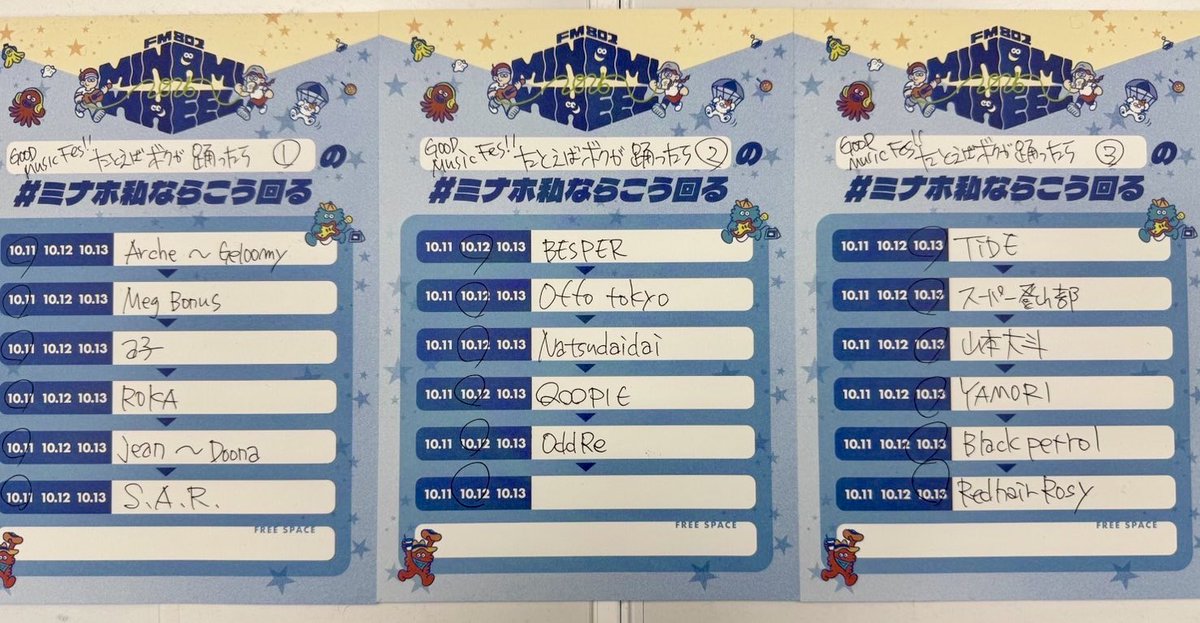 FM802
MINAMI
WHEEL
2026
GOOD
Music Fes!! たとえばボクが踊ったら ① の
#ミナホ私ならこう回る
10.11 10.12 10.13 Arche ~ Geloomy
10.11 10.12 10.13 Meg Bonus
10.11 10.12 10.13
10.11 10.12 10.13 ROKA
10.11 10.12 10.13 Jean ~ Doona
10.11 10.12 10.13 S.A.R.
FREE SPACE
FM802
MINAMI
WHEEL
2026
GOOD
Music Fes!! たとえばボクが踊ったら ② の
#ミナホ私ならこう回る
10.11 10.12 10.13 BESPER
10.11 10.12 10.13 Otto tokyo
10.11 10.12 10.13 Natsudaidai
10.11 10.12 10.13 QOOPIE
10.11 10.12 10.13 OddRe
10.11 10.12 10.13
FREE SPACE
FM802
MINAMI
WHEEL
2026
GOOD
Music Fes!! たとえばボクが踊ったら ③ の
#ミナホ私ならこう回る
10.11 10.12 10.13 TIDE
10.11 10.12 10.13 スーパー登山部
10.11 10.12 10.13 山本大斗
10.11 10.12 10.13 YAMORI
10.11 10.12 10.13 Black petrol
10.11 10.12 10.13 Redhair Rosy
FREE SPACE